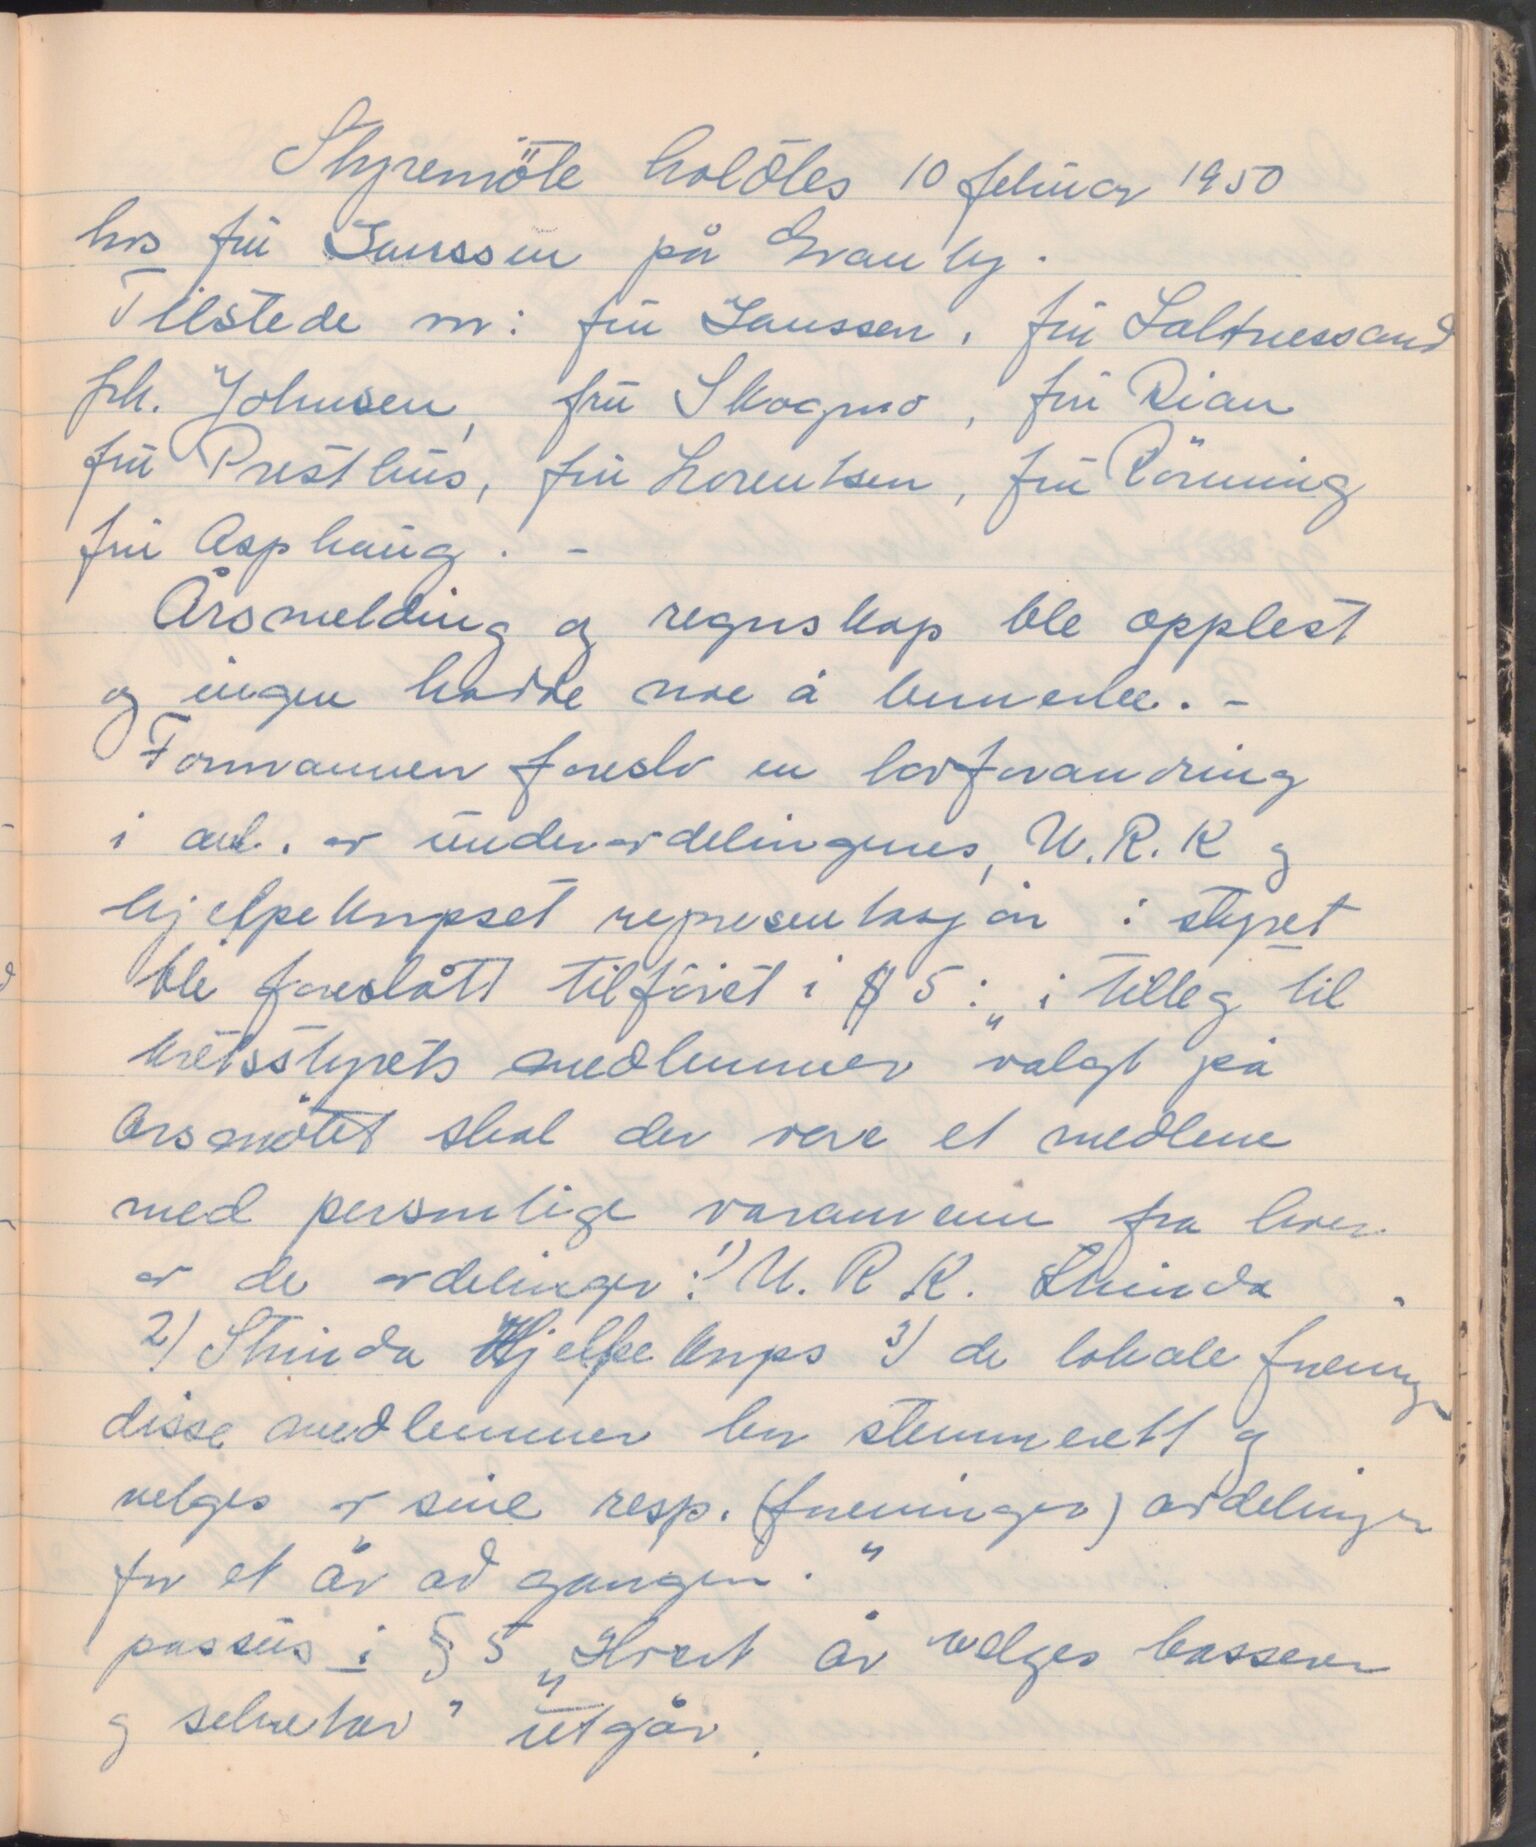 Styremöte holdtes 10 februar 1950
hos frü Janssen på Granby.
Tilstede var: frü Janssen, frü Saltnessand
frk. Johnsen, frü Skogmo, frü Rian
frü Presthüs, frü Lorentsen, frü Rönning
frü Asphaüg. -
Årsmelding og regnskap ble opplest
og ingen hadde noe å bemerke. -
Formannen foreslo en lovforandring
i anl. av ünderavdelingenes, U.R.K og
hjelpekorpset representasjon i styret
ble foreslått tilföiet i § 5: „i tilleg til
kretsstyrets medlemmer valgt på
årsmötet skal der være et medlem
med personlige varamenn fra hver
av de avdelinger: 1) U.R.K. Strinda
2) Strinda Hjelpekorps 3) de lokale foreninger
disse medlemmer har stemmerett og
velges av sine resp. (foreninger) avdelinger
for et år ad gangen."
passüs i § 5 „Hvert år velges kasserer
og sekretær" utgår.